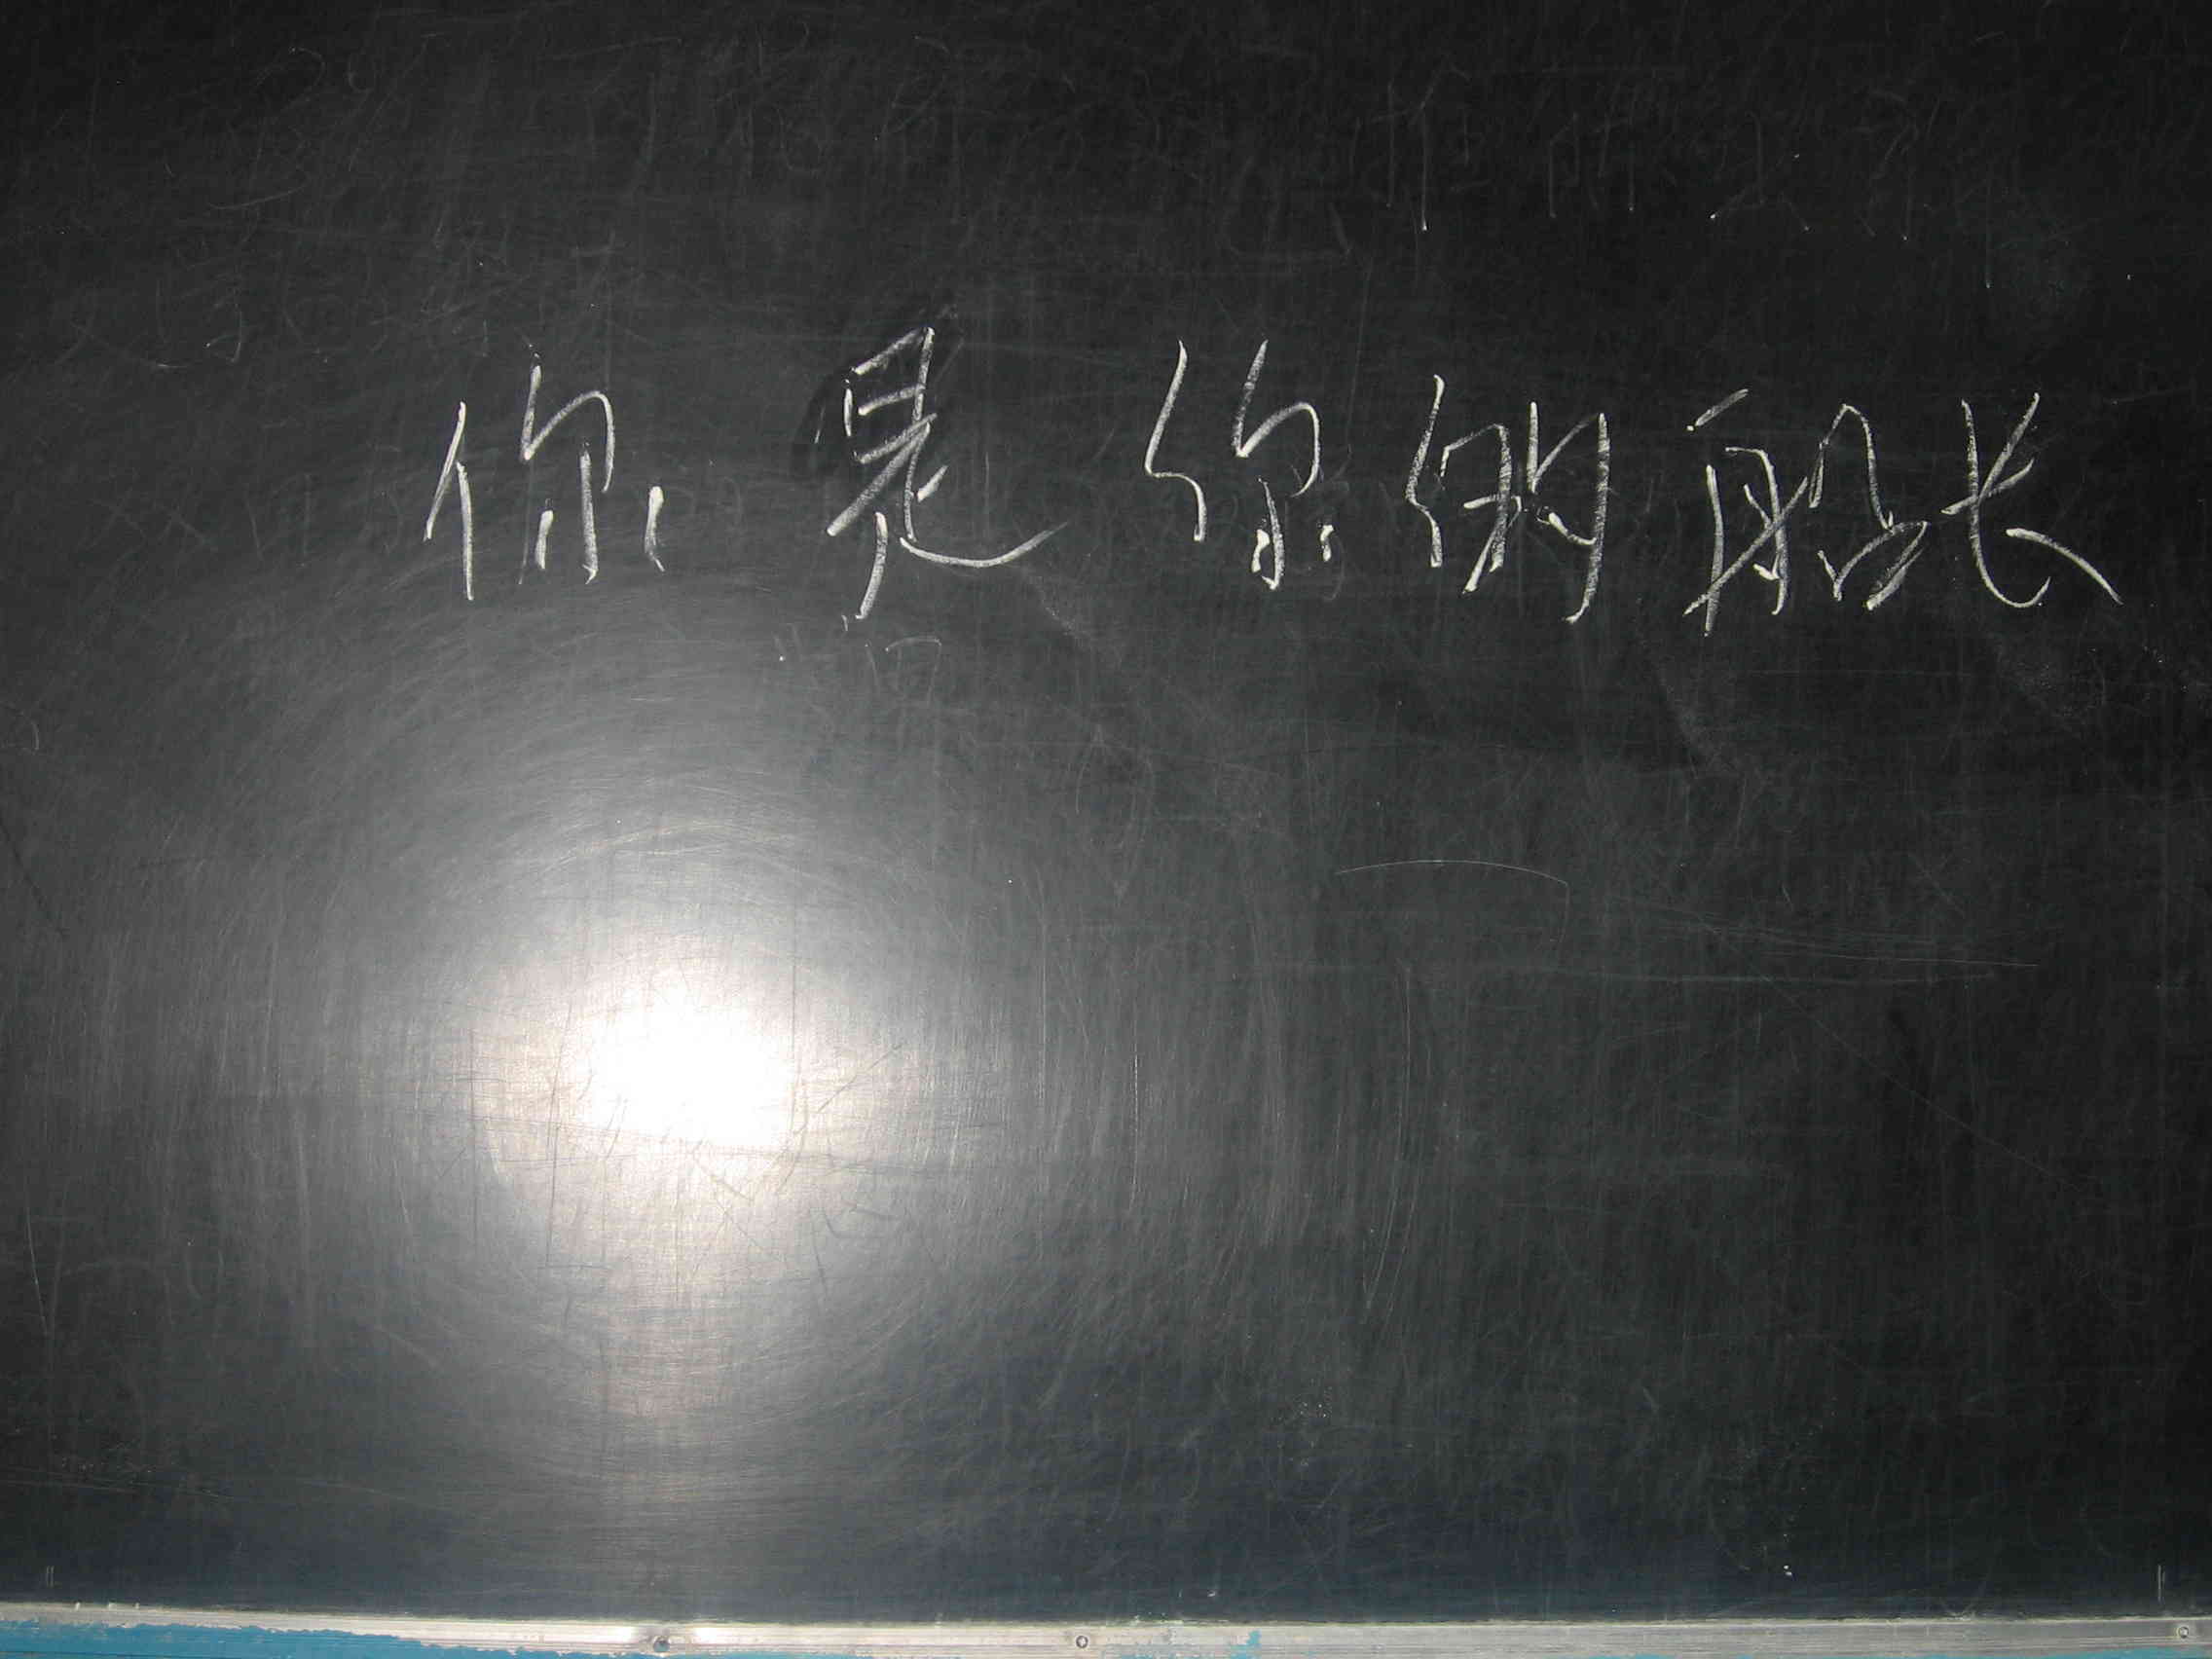 你是你的船长